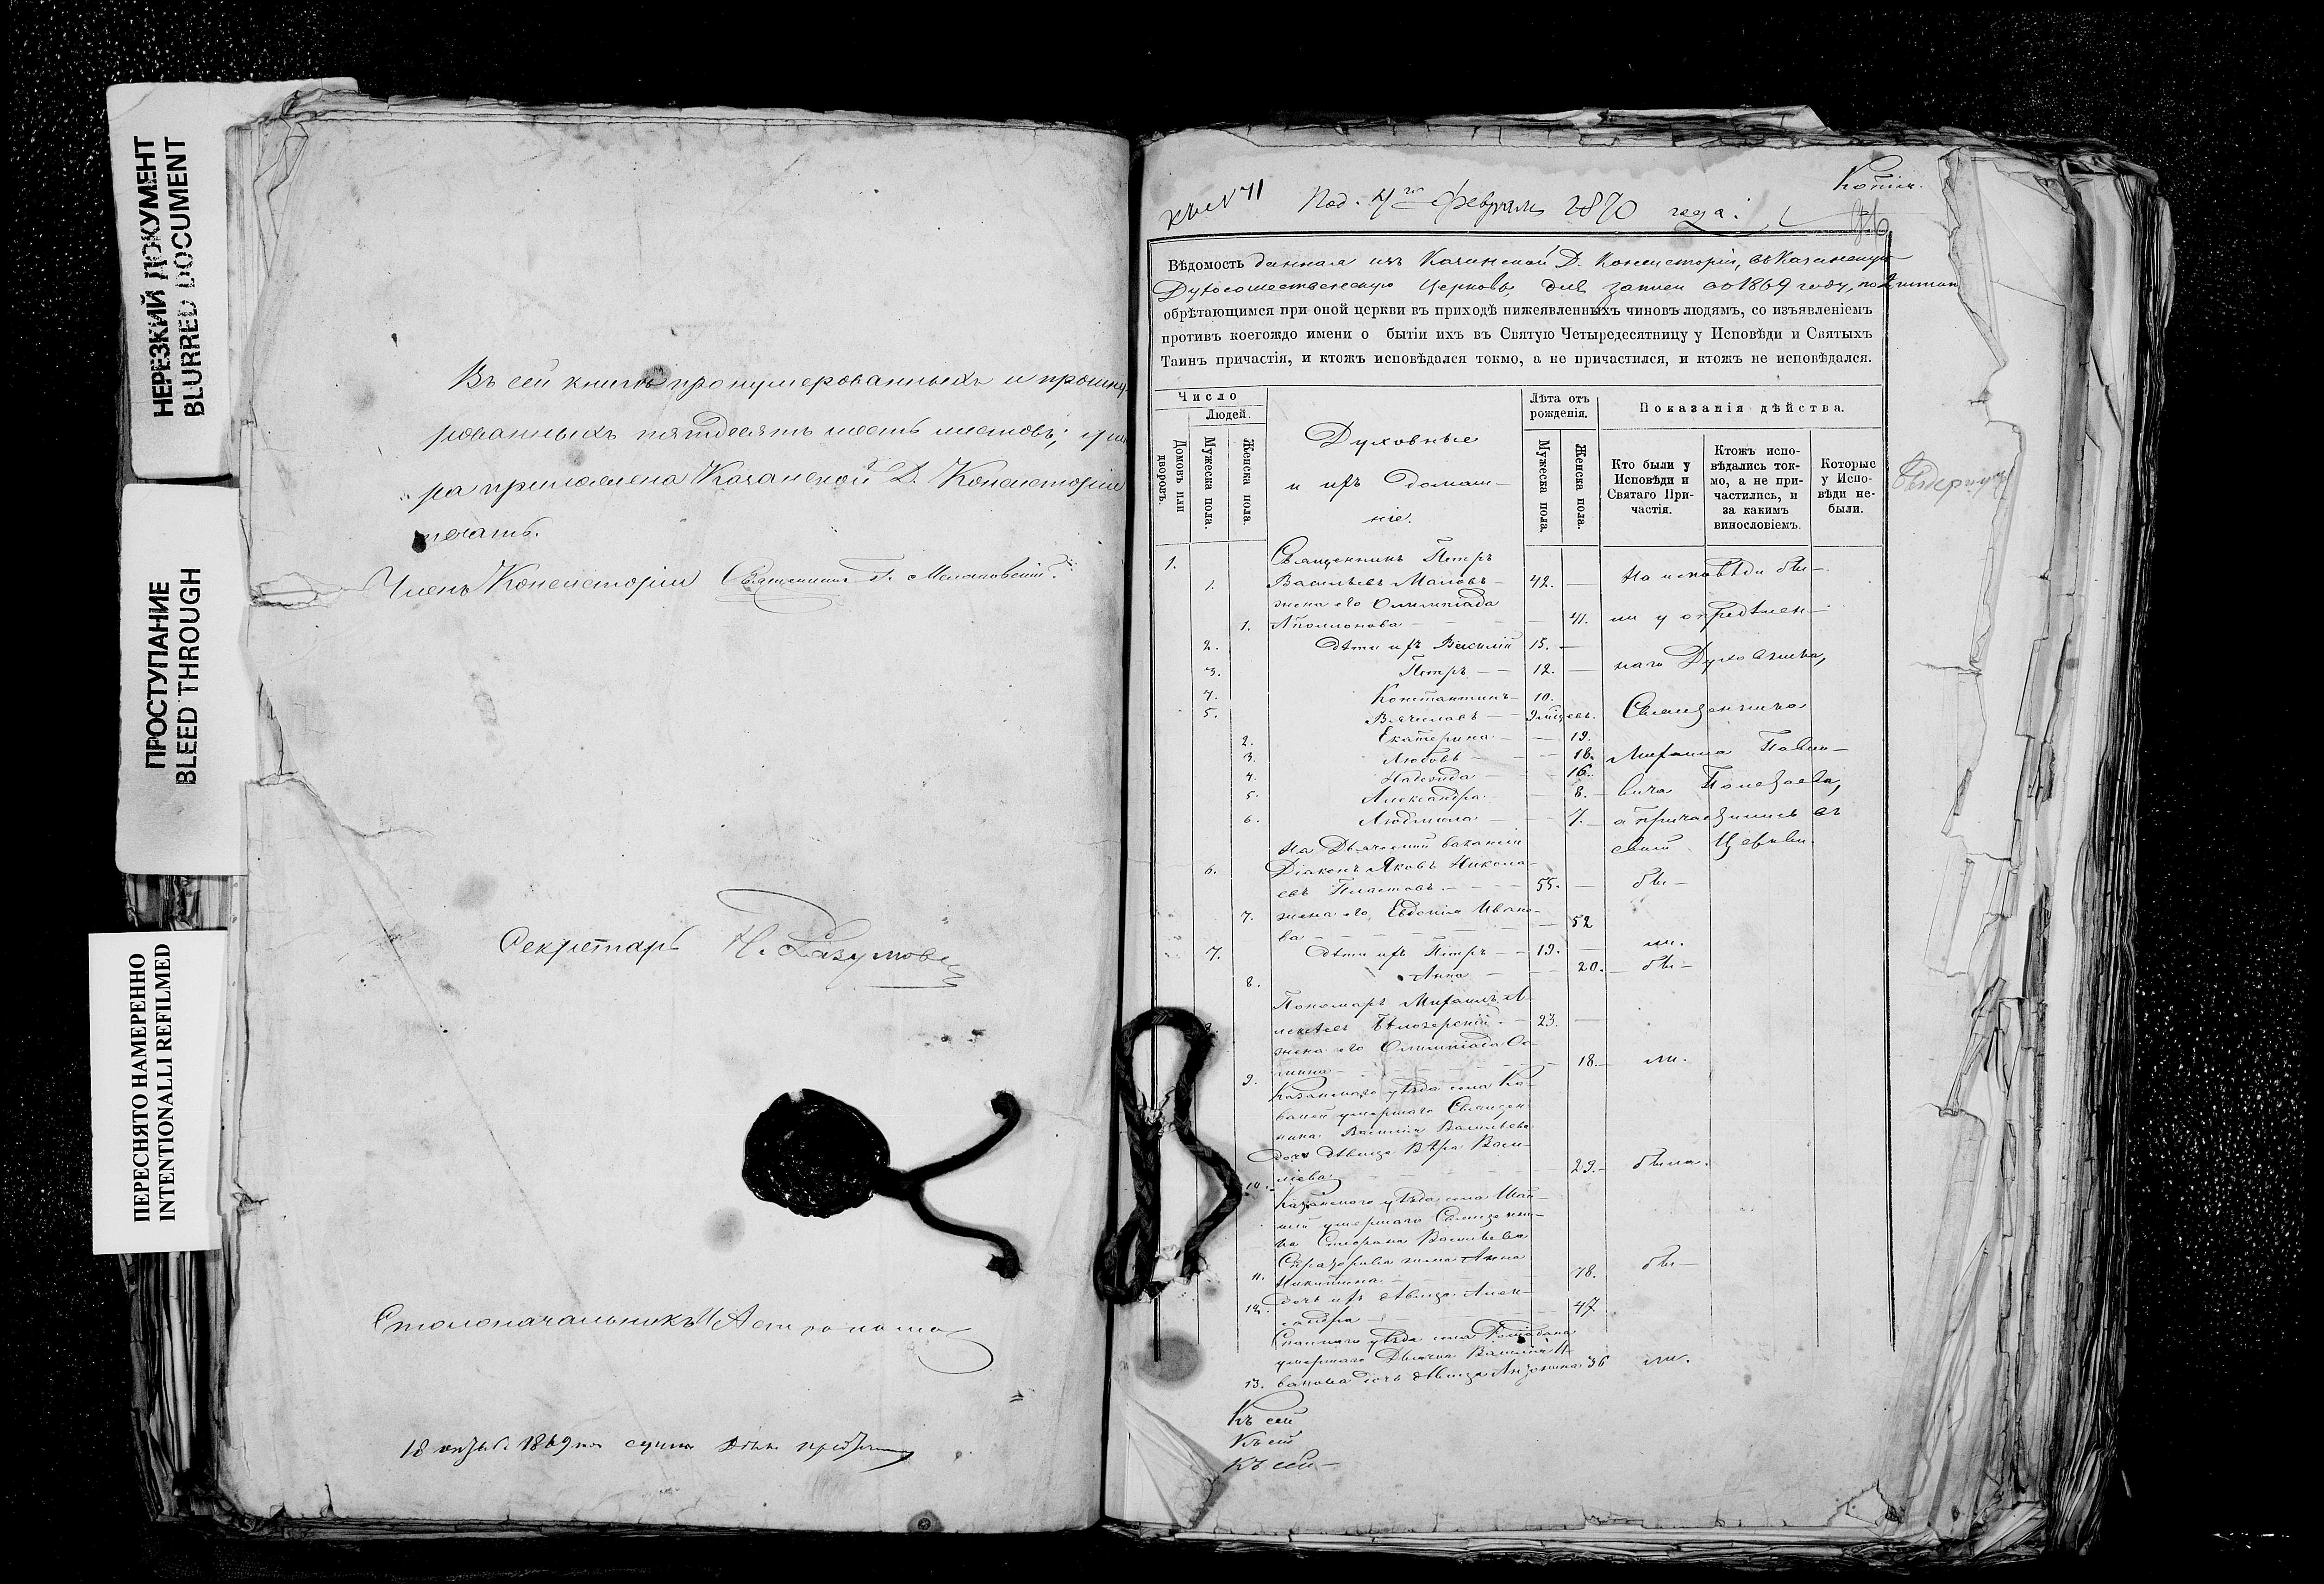 НЕРЕЗКИЙ ДОКУМЕНТ
BLURRED DOCUMENT
ПРОСТУПАНИЕ
BLEED THROUGH
ПЕРЕСНЯТО НАМЕРЕННО
INTENTIONALLI REFILMED
Въ сей книгѣ пронумерованныхъ и прошну-
рованныхъ пятдесятъ шесть листовъ;
ра приложена Казанской Д. Консисторіи
печать.
Членъ Консисторіи Священникъ
Секретарь Н. Разумовъ
Столоначальникъ
18 1869
№ 71 Под. Февраля 1870 года.
Копія.
Вѣдомость данная изъ Казанской Д. Консисторіи, въ Казанскую
Духосошественскую Церковь, для записи по 1869 году,
обрѣтающимся при оной церкви въ приходѣ нижеявленныхъ чиновъ людямъ, со изъявленіемъ
противъ коегождо имени о бытіи ихъ въ Святую Четыредесятницу у Исповѣди и Святыхъ
Таинъ причастія, и ктожъ исповѣдался токмо, а не причастился, и ктожъ не исповѣдался.
Число
Людей.
Домовъ или дворовъ.
Мужеска пола.
Женска пола.
Духовные
и ихъ домаш-
ніе.
Лѣта отъ
рожденія.
Мужеска пола.
Женска пола.
Показанія дѣйства.
Кто были у
Исповѣди и
Святаго При-
частія.
Ктожъ испо-
вѣдались ток-
мо, а не при-
частились, и
за какимъ
винословіемъ.
Которые
у Испо-
вѣди не-
были.
1. Священникъ Петръ
1. Васильевъ Маловъ 42. На исповѣди бы-
жена его Олимпіада
1. Аполлонова 41. ли у опредѣлен-
2. дѣти ихъ Василій 15.
3. Петръ 12. наго Духовника,
4. Константинъ 10.
5. Вячеславъ 9 мѣсяцевъ. Священника
2. Екатерина 19.
3. Любовь 18. Михаила Павло-
4. Надежда 16.
5. Александра 8. вича Полезаева,
6. Людмила 7. а причащались въ
На Дьяческой вакансіи своей Церкви.
6. Діаконъ Яковъ Никола-
евъ Пластовъ 55. бы-
7. жена его Евдокія Ивано-
ва 52
7. дѣти ихъ Петръ 19. ли.
8. Анна 20. бы-
Пономарь Михаилъ А-
лексѣевъ Бѣлозерскій 23.
жена его Олимпіада
9. 18. ли.
Казанскаго уѣзда села Ко-
умершаго Священ-
ника Василія Васильева
дочь дѣвица Вѣра Васи-
10. ліева 29. была.
Казанскаго уѣзда села
умершаго Священни-
ка Стефана Васильева
жена Анна
11. Никитина 78. бы-
12. дочь ихъ дѣвица Алек-
сандра 47
Спасскаго уѣзда села
умершаго Дьячка Василія И-
13. ванова дочь дѣвица 36 ли.
Къ сей
Къ сей
Къ сей